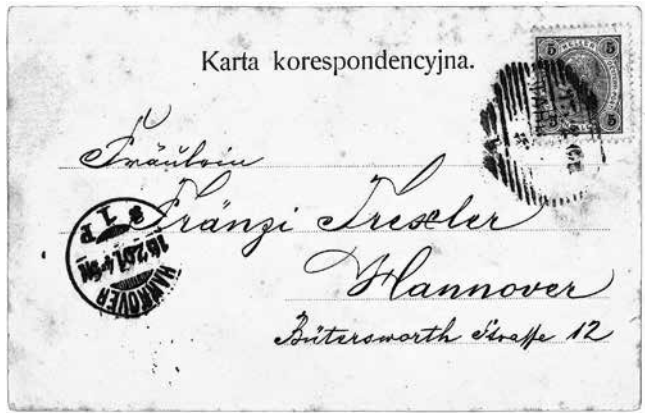 Karta korespondencyjna.
5 HELLER 5
5 5
Fräulein
Fränzi Trexler
Hannover
Bütersworth Straße 12
HANNOVER
1 P